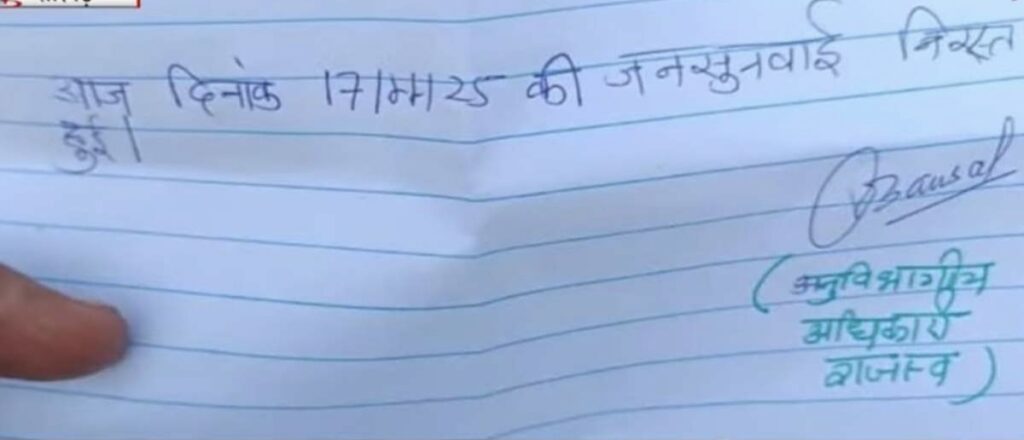 आज दिनांक 17/11/25 की जनसुनवाई निरस्त
हुई।
Bansal
(अनुविभागीय
अधिकारी
राजस्व)